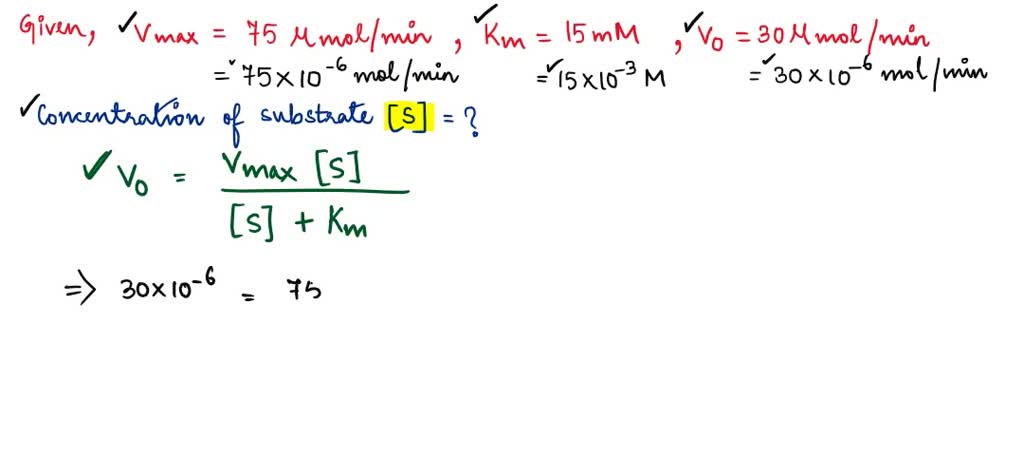 Given, ✓Vmax = 75 μmol/min, ✓Km = 15mM, ✓V₀ = 30μmol/min
= 75×10⁻⁶ mol/min = 15×10⁻³ M = 30×10⁻⁶ mol/min
✓Concentration of substrate [S] = ?
✓ V₀ = Vmax [S] / [S] + Km
⇒ 30×10⁻⁶ = 75